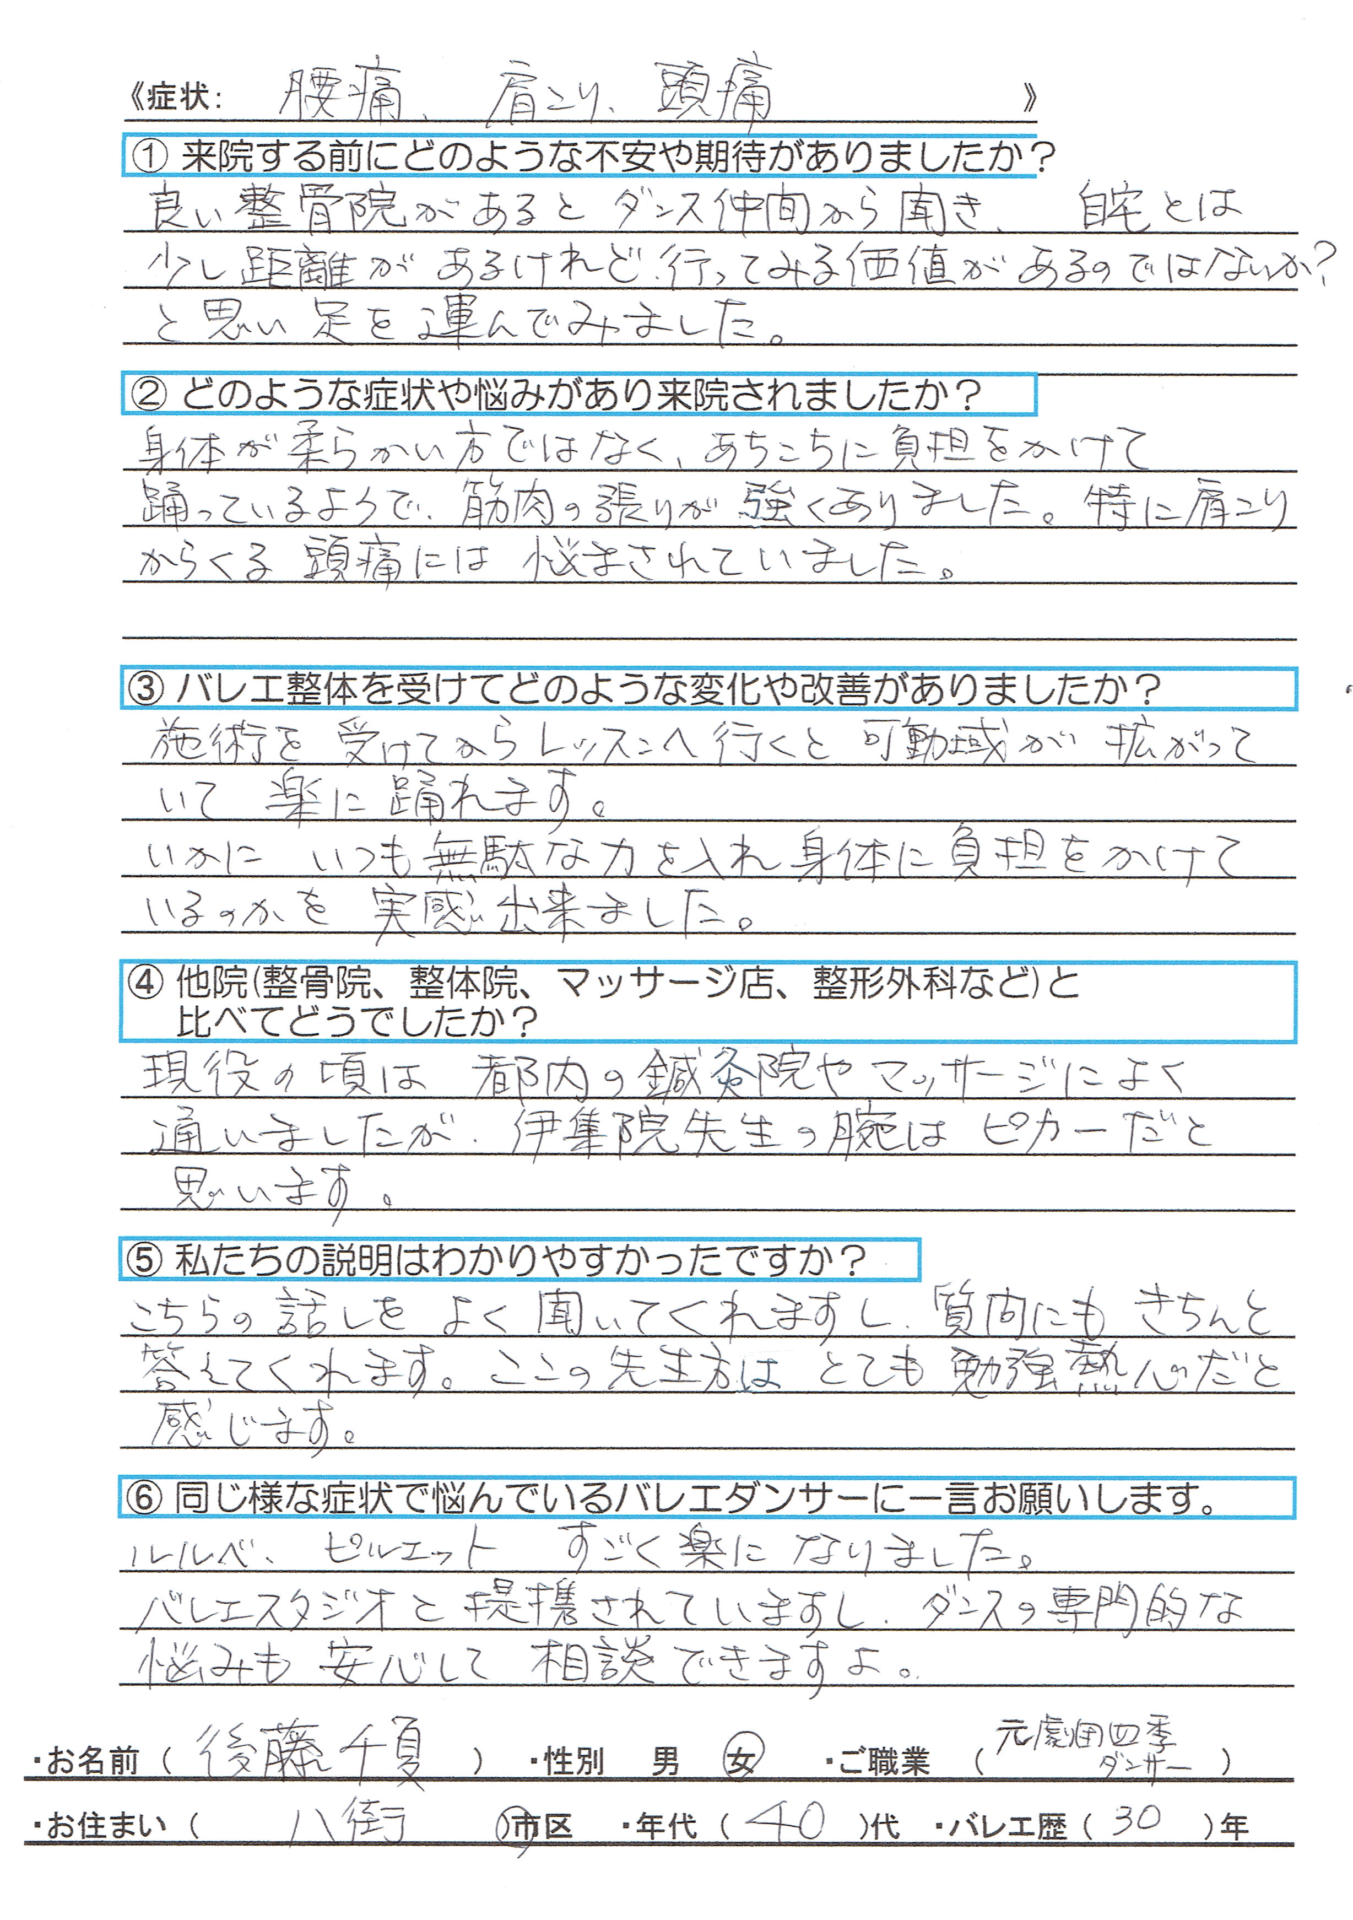 《症状: 腰痛、肩こり、頭痛 》
① 来院する前にどのような不安や期待がありましたか？
良い整骨院があるとダンス仲間から聞き、自宅とは
少し距離があるけれど、行ってみる価値があるのではないか?
と思い足を運んでみました。
② どのような症状や悩みがあり来院されましたか？
身体が柔らかい方ではなく、あちこちに負担をかけて
踊っているようで、筋肉の張りが強くありました。特に肩こり
からくる頭痛には悩まされていました。
③ バレエ整体を受けてどのような変化や改善がありましたか？
施術を受けてからレッスンへ行くと可動域が拡がって
いて楽に踊れます。
いかにいつも無駄な力を入れ身体に負担をかけて
いるのかを実感出来ました。
④ 他院(整骨院、整体院、マッサージ店、整形外科など)と
比べてどうでしたか？
現役の頃は都内の鍼灸院やマッサージによく
通いましたが、伊集院先生の腕はピカ一だと
思います。
⑤ 私たちの説明はわかりやすかったですか？
こちらの話しをよく聞いてくれますし、質問にもきちんと
答えてくれます。ここの先生方はとても勉強熱心だと
感じます。
⑥ 同じ様な症状で悩んでいるバレエダンサーに一言お願いします。
ルルベ、ピルエットすごく楽になりました。
バレエスタジオと提携されていますし、ダンスの専門的な
悩みも安心して相談できますよ。
・お名前 ( 後藤千夏 ) ・性別 男 女 ・ご職業 ( 元劇団四季 ダンサー )
・お住まい ( 八街 )市区 ・年代 ( 40 )代 ・バレエ歴 ( 30 )年